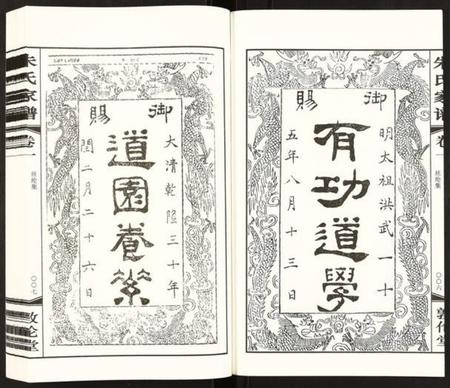 朱氏家譜
卷一
〇〇六
御賜
明太祖洪武一十
有功道學
五年八月十三日
御賜
大清乾隆三十年
道園
閏二月二十六日
朱氏家譜
卷一
〇〇七